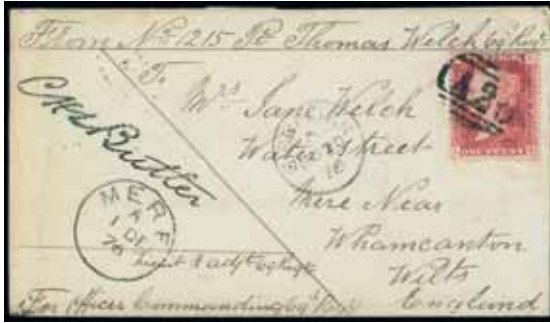 From No. 1215 Pt Thomas Welch 69 Regt
To
Mrs Jane Welch
Water Street
Mere Near
Whamcanton
Wilts
England
CHS Butler
MERE
A
1 DE
76
Lieut & adjt 69 Regt
For Officer Commanding 69 Regt
ONE PENNY